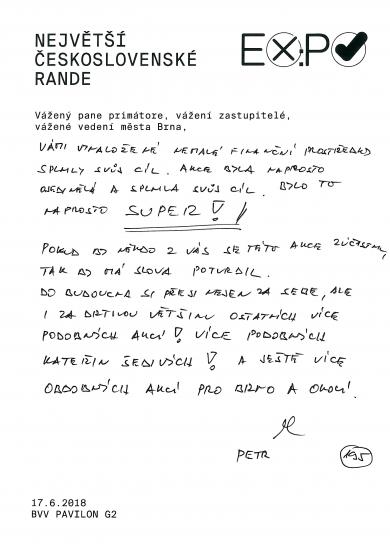 NEJVĚTŠÍ
ČESKOSLOVENSKÉ
RANDE
EXPO
Vážený pane primátore, vážení zastupitelé,
vážené vedení města Brna,
VÁMI VYNALOŽENÉ NEMALÉ FINANČNÍ PROSTŘEDKY
SPLNILY SVŮJ CÍL. AKCE BYLA NAPROSTO
OJEDINĚLÁ A SPLNILA SVŮJ CÍL. BYLO TO
NAPROSTO SUPER!
POKUD BY NĚKDO Z VÁS SE TÉTO AKCE ZÚČASTNIL,
TAK BY MÁ SLOVA POTVRDIL.
DO BUDOUCNA SI PŘEJI NEJEN ZA SEBE, ALE
I ZA DRTIVOU VĚTŠINU OSTATNÍCH VÍCE
PODOBNÝCH AKCÍ! VÍCE PODOBNÝCH
KATEŘIN ŠEDIVÝCH! A JEŠTĚ VÍCE
OBDOBNÝCH AKCÍ PRO BRNO A OKOLÍ.
PETR 195
17.6.2018
BVV PAVILON G2